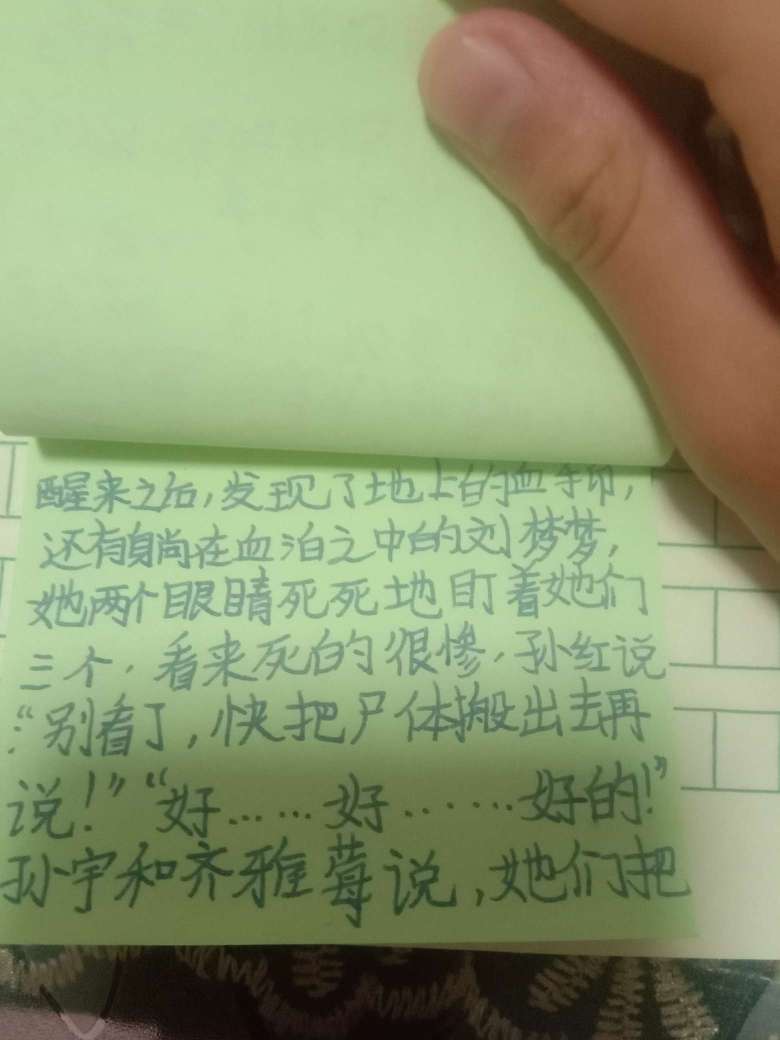 醒来之后,发现了地上的血手印,
还有躺在血泊之中的刘梦梦,
她两个眼睛死死地盯着她们
三个,看来死的很惨,孙红说
:“别看了,快把尸体搬出去再
说!”“好……好……好的!”
孙宇和齐雅莓说,她们把